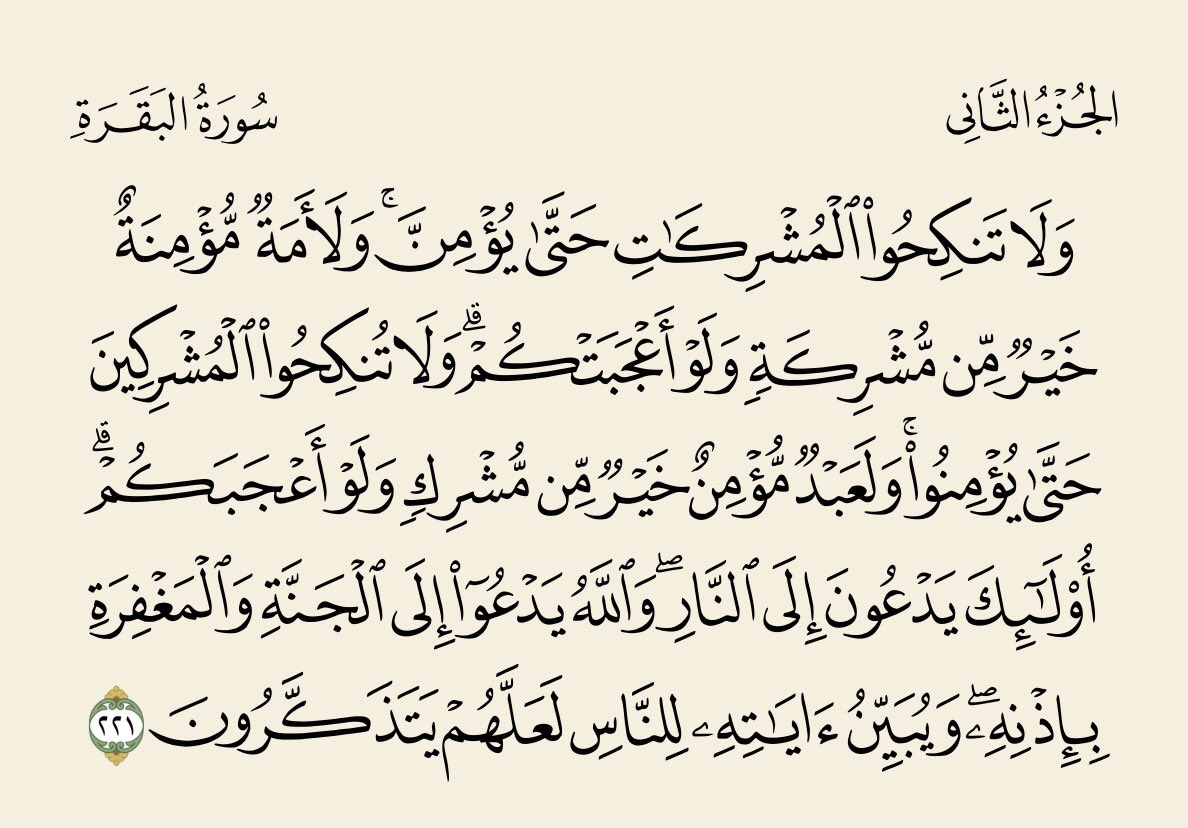 الجُزْءُ الثَّانِى
سُورَةُ البَقَرَةِ
وَلَا تَنكِحُوا۟ ٱلْمُشْرِكَـٰتِ حَتَّىٰ يُؤْمِنَّ ۚ وَلَأَمَةٌ مُّؤْمِنَةٌ
خَيْرٌ مِّن مُّشْرِكَةٍ وَلَوْ أَعْجَبَتْكُمْ ۗ وَلَا تُنكِحُوا۟ ٱلْمُشْرِكِينَ
حَتَّىٰ يُؤْمِنُوا۟ ۚ وَلَعَبْدٌ مُّؤْمِنٌ خَيْرٌ مِّن مُّشْرِكٍ وَلَوْ أَعْجَبَكُمْ ۗ
أُو۟لَـٰٓئِكَ يَدْعُونَ إِلَى ٱلنَّارِ ۖ وَٱللَّهُ يَدْعُوٓا۟ إِلَى ٱلْجَنَّةِ وَٱلْمَغْفِرَةِ
بِإِذْنِهِۦ ۖ وَيُبَيِّنُ ءَايَـٰتِهِۦ لِلنَّاسِ لَعَلَّهُمْ يَتَذَكَّرُونَ ٢٢١